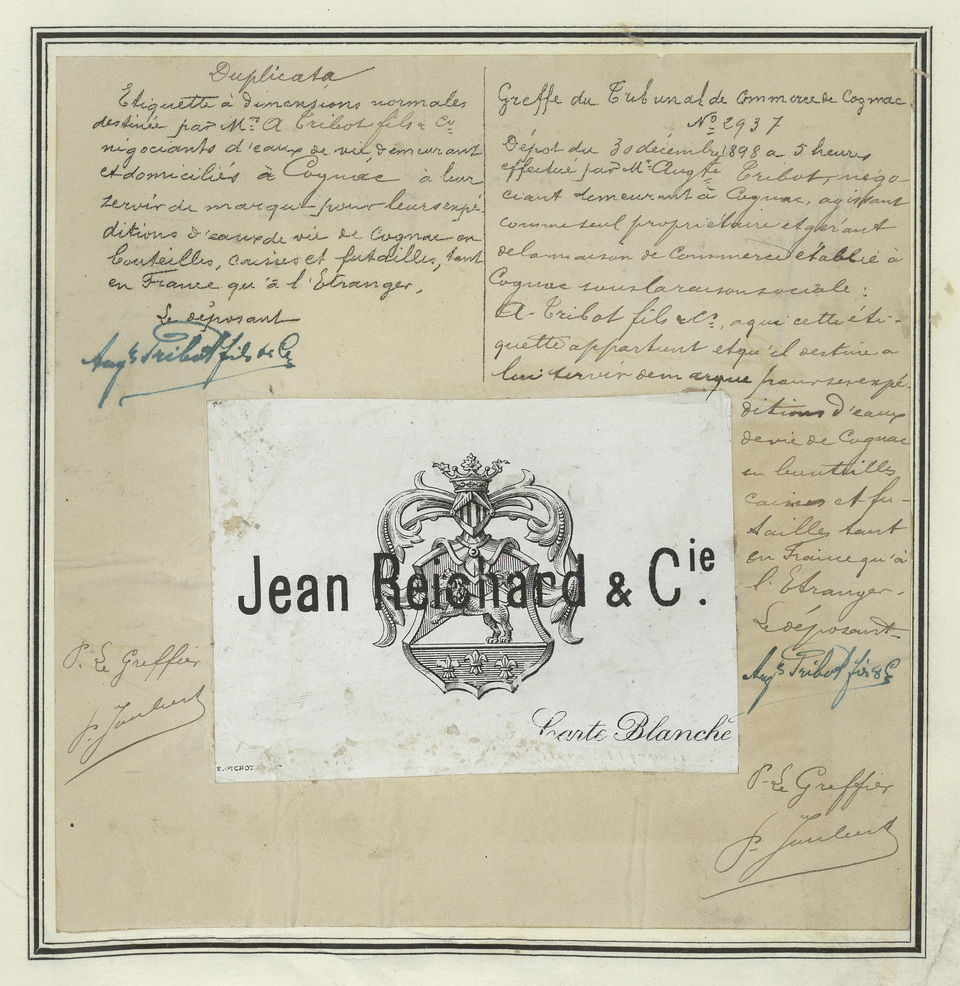 Duplicata
Etiquette à dimensions normales
destinée par Mrs A Tribot fils & Cie
négociants d'eaux de vie, demeurant
et domiciliés à Cognac à leur
servir de marque pour leurs expé-
ditions d'eaux de vie de Cognac en
bouteilles, caisses et futailles, tant
en France qu'à l'Etranger.
Le déposant
Augte Tribot fils & Cie
Greffe du Tribunal de Commerce de Cognac.
No 2937
Dépôt du 30 décembre 1898 a 5 heures
effectué par Mr Augte Tribot, négo-
ciant demeurant à Cognac, agissant
comme seul propriétaire et gérant
de la maison de Commerce établie à
Cognac sous la raison sociale :
A. Tribot fils & Cie, a qui cette éti-
quette appartient et qu'il destine a
lui servir de marque pour ses expé-
ditions d'eaux
de vie de Cognac
en bouteilles
caisses et fu-
tailles tant
en France qu'à
l'Etranger.
Le déposant
Augte Tribot fils & Cie
Jean Reichard & Cie.
Carte Blanche
P. Le Greffier
P. Le Greffier